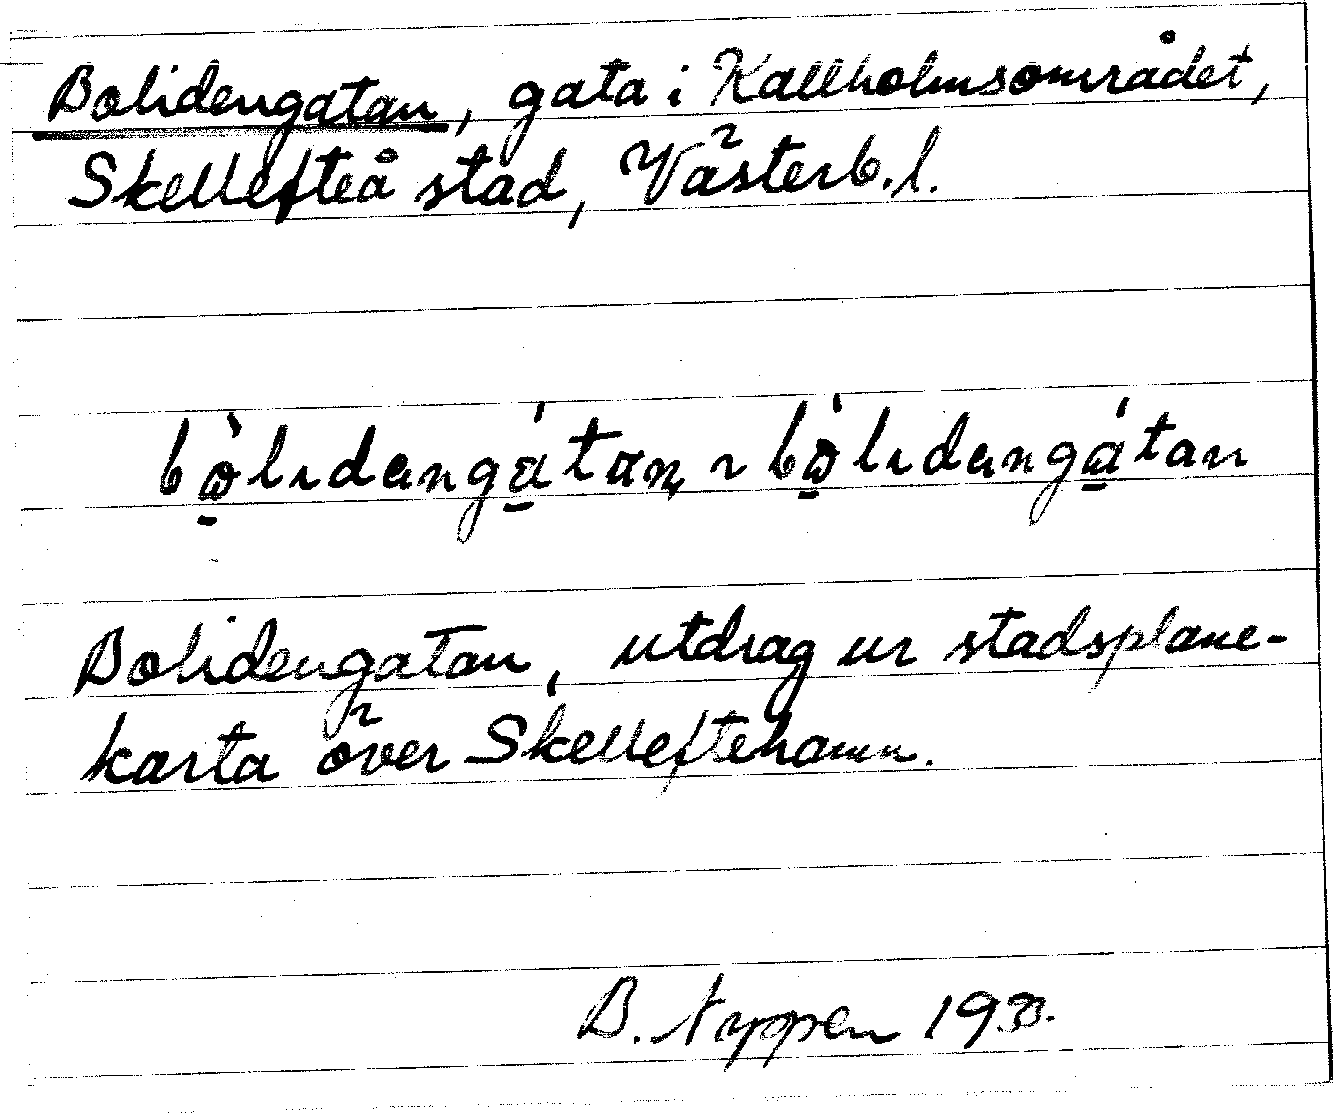 Bolidengatan, gata i Kallholmsområdet,
Skellefteå stad, Västerb.l.
bò̱lıdengá̱tan ~ bò̱lıdengá̱tan
Bolidengatan, utdrag ur stadsplane-
karta över Skelleftehamn.
B.